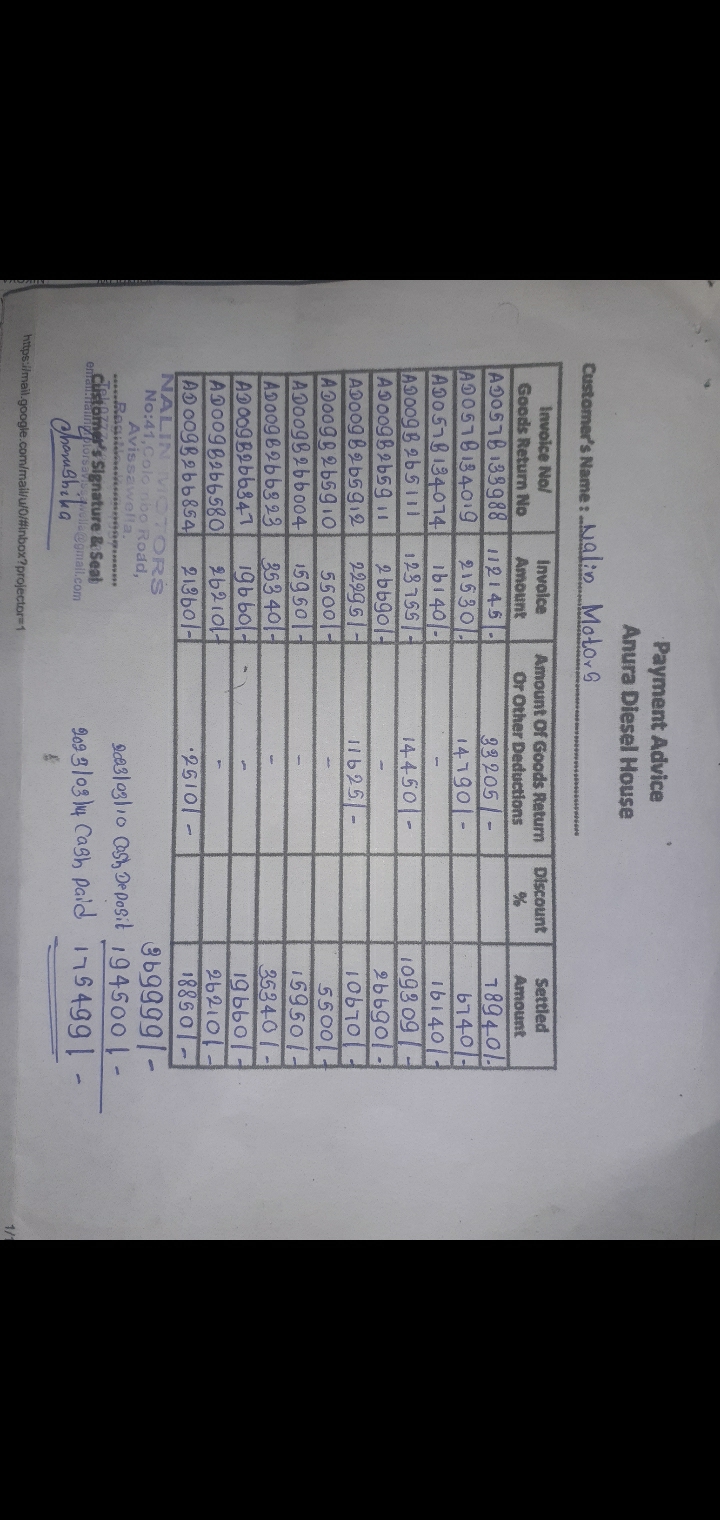 Payment Advice
Anura Diesel House
Customer's Name : Nalin Motors
Invoice No/ Goods Return No | Invoice Amount | Amount Of Goods Return Or Other Deductions | Discount % | Settled Amount
AD057B133988 | 112145/- | 33205/- | | 78940/-
AD057B134019 | 21530/- | 14790/- | | 6740/-
AD057B134074 | 16140/- | - | | 16140/-
AD009B265111 | 123755/- | 14450/- | | 109309/-
AD009B265911 | 26690/- | - | | 26690/-
AD009B265912 | 22295/- | 11625/- | | 10670/-
AD009B265910 | 5500/- | - | | 5500/-
AD009B266004 | 15950/- | - | | 15950/-
AD009B266323 | 35340/- | - | | 35340/-
AD009B266347 | 19660/- | - | | 19660/-
AD009B266580 | 26210/- | - | | 26210/-
AD009B266854 | 21360/- | 2510/- | | 18850/-
369999/-
NALIN MOTORS
No:41,Colombo Road,
Avissawella.
2023/03/10 Cash Deposit 194500/-
Customer's Signature & Seal
@gmail.com
2023/03/14 Cash paid 175499/-
https://mail.google.com/mail/u/0/#inbox?projector=1
1/1